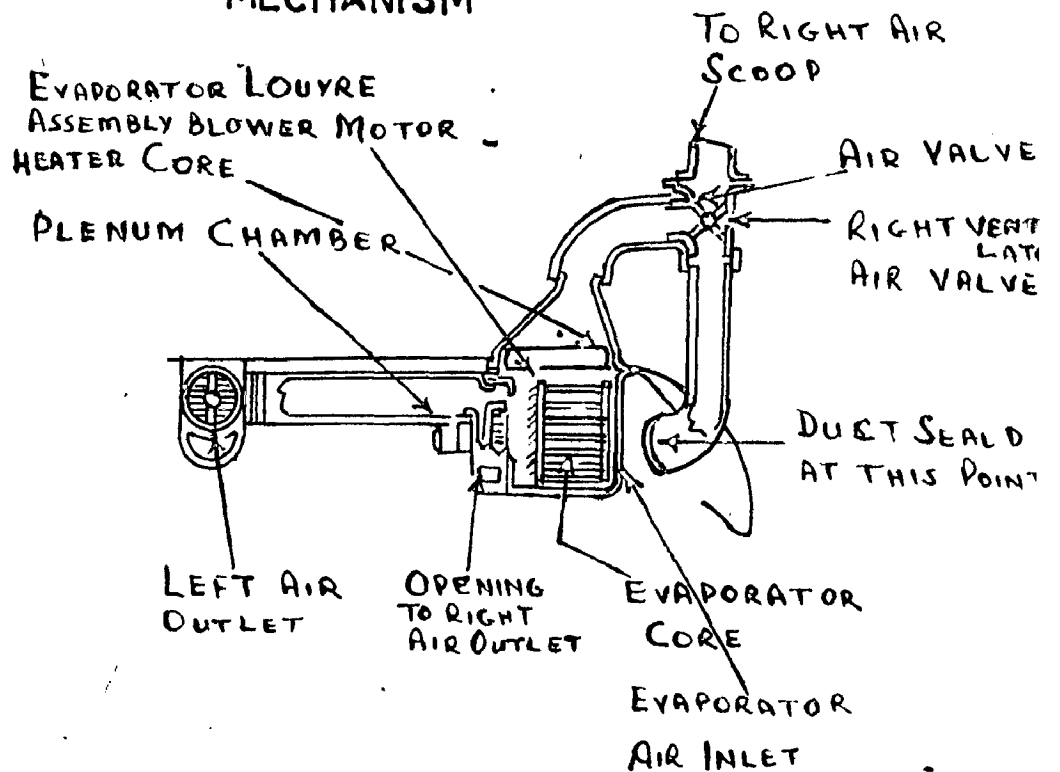 MECHANISM
TO RIGHT AIR
SCOOP
EVAPORATOR LOUVRE
ASSEMBLY BLOWER MOTOR
HEATER CORE
AIR VALVE
PLENUM CHAMBER
RIGHT VENT
LAT
AIR VALVE
DUCT SEALD
AT THIS POINT
LEFT AIR
OUTLET
OPENING
TO RIGHT
AIR OUTLET
EVAPORATOR
CORE
EVAPORATOR
AIR INLET